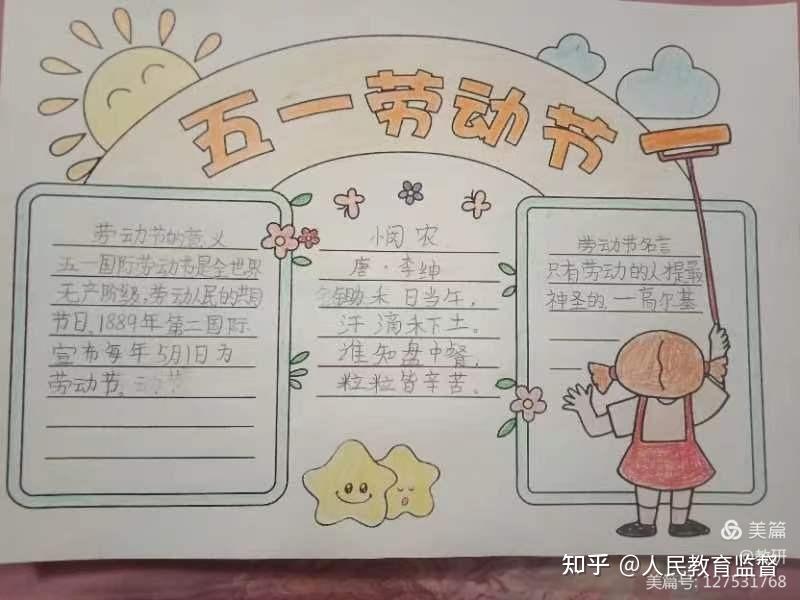 五一劳动节
劳动节的意义
五一国际劳动节是全世界
无产阶级、劳动人民的共同
节日。1889年第二国际
宣布每年5月1日为
劳动节。
悯农
唐·李绅
锄禾日当午,
汗滴禾下土。
谁知盘中餐,
粒粒皆辛苦。
劳动节名言
只有劳动的人才是最
神圣的。一高尔基
美篇
@教研
知乎 @人民教育监督
美篇号: 127531768